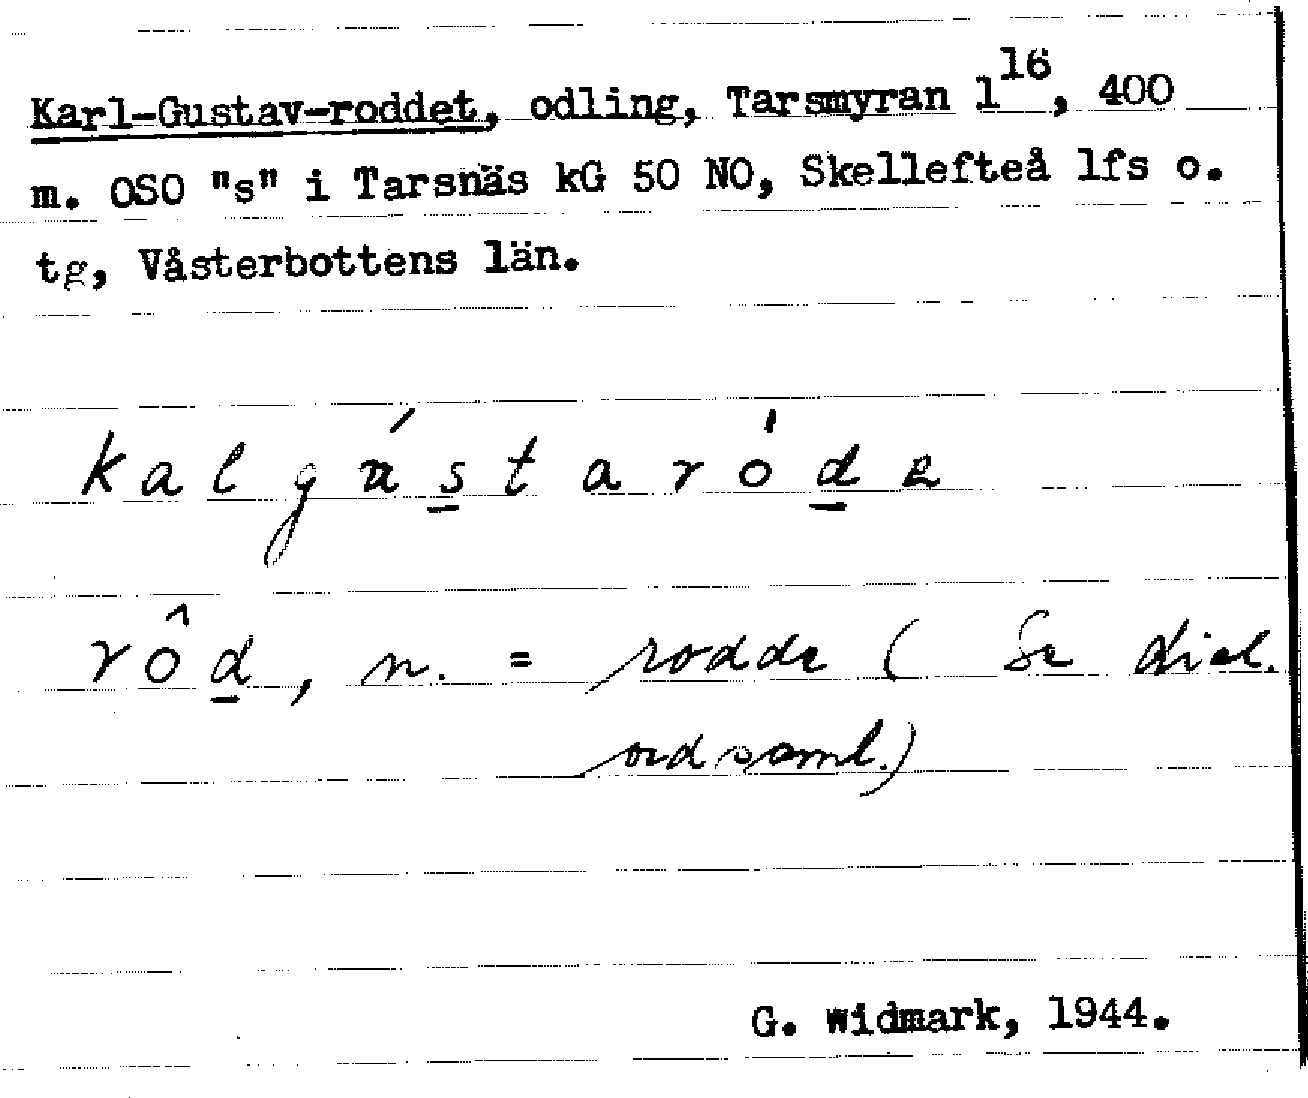 Karl-Gustav-roddet, odling, Tarsmyran 1¹⁶, 400
m. OSO "s" i Tarsnäs kG 50 NO, Skellefteå lfs o.
tg, Våsterbottens län.
kalgús̲taród̲e
rôd̲, n. = rodde (Se dial.
ordsaml.)
G. Widmark, 1944.